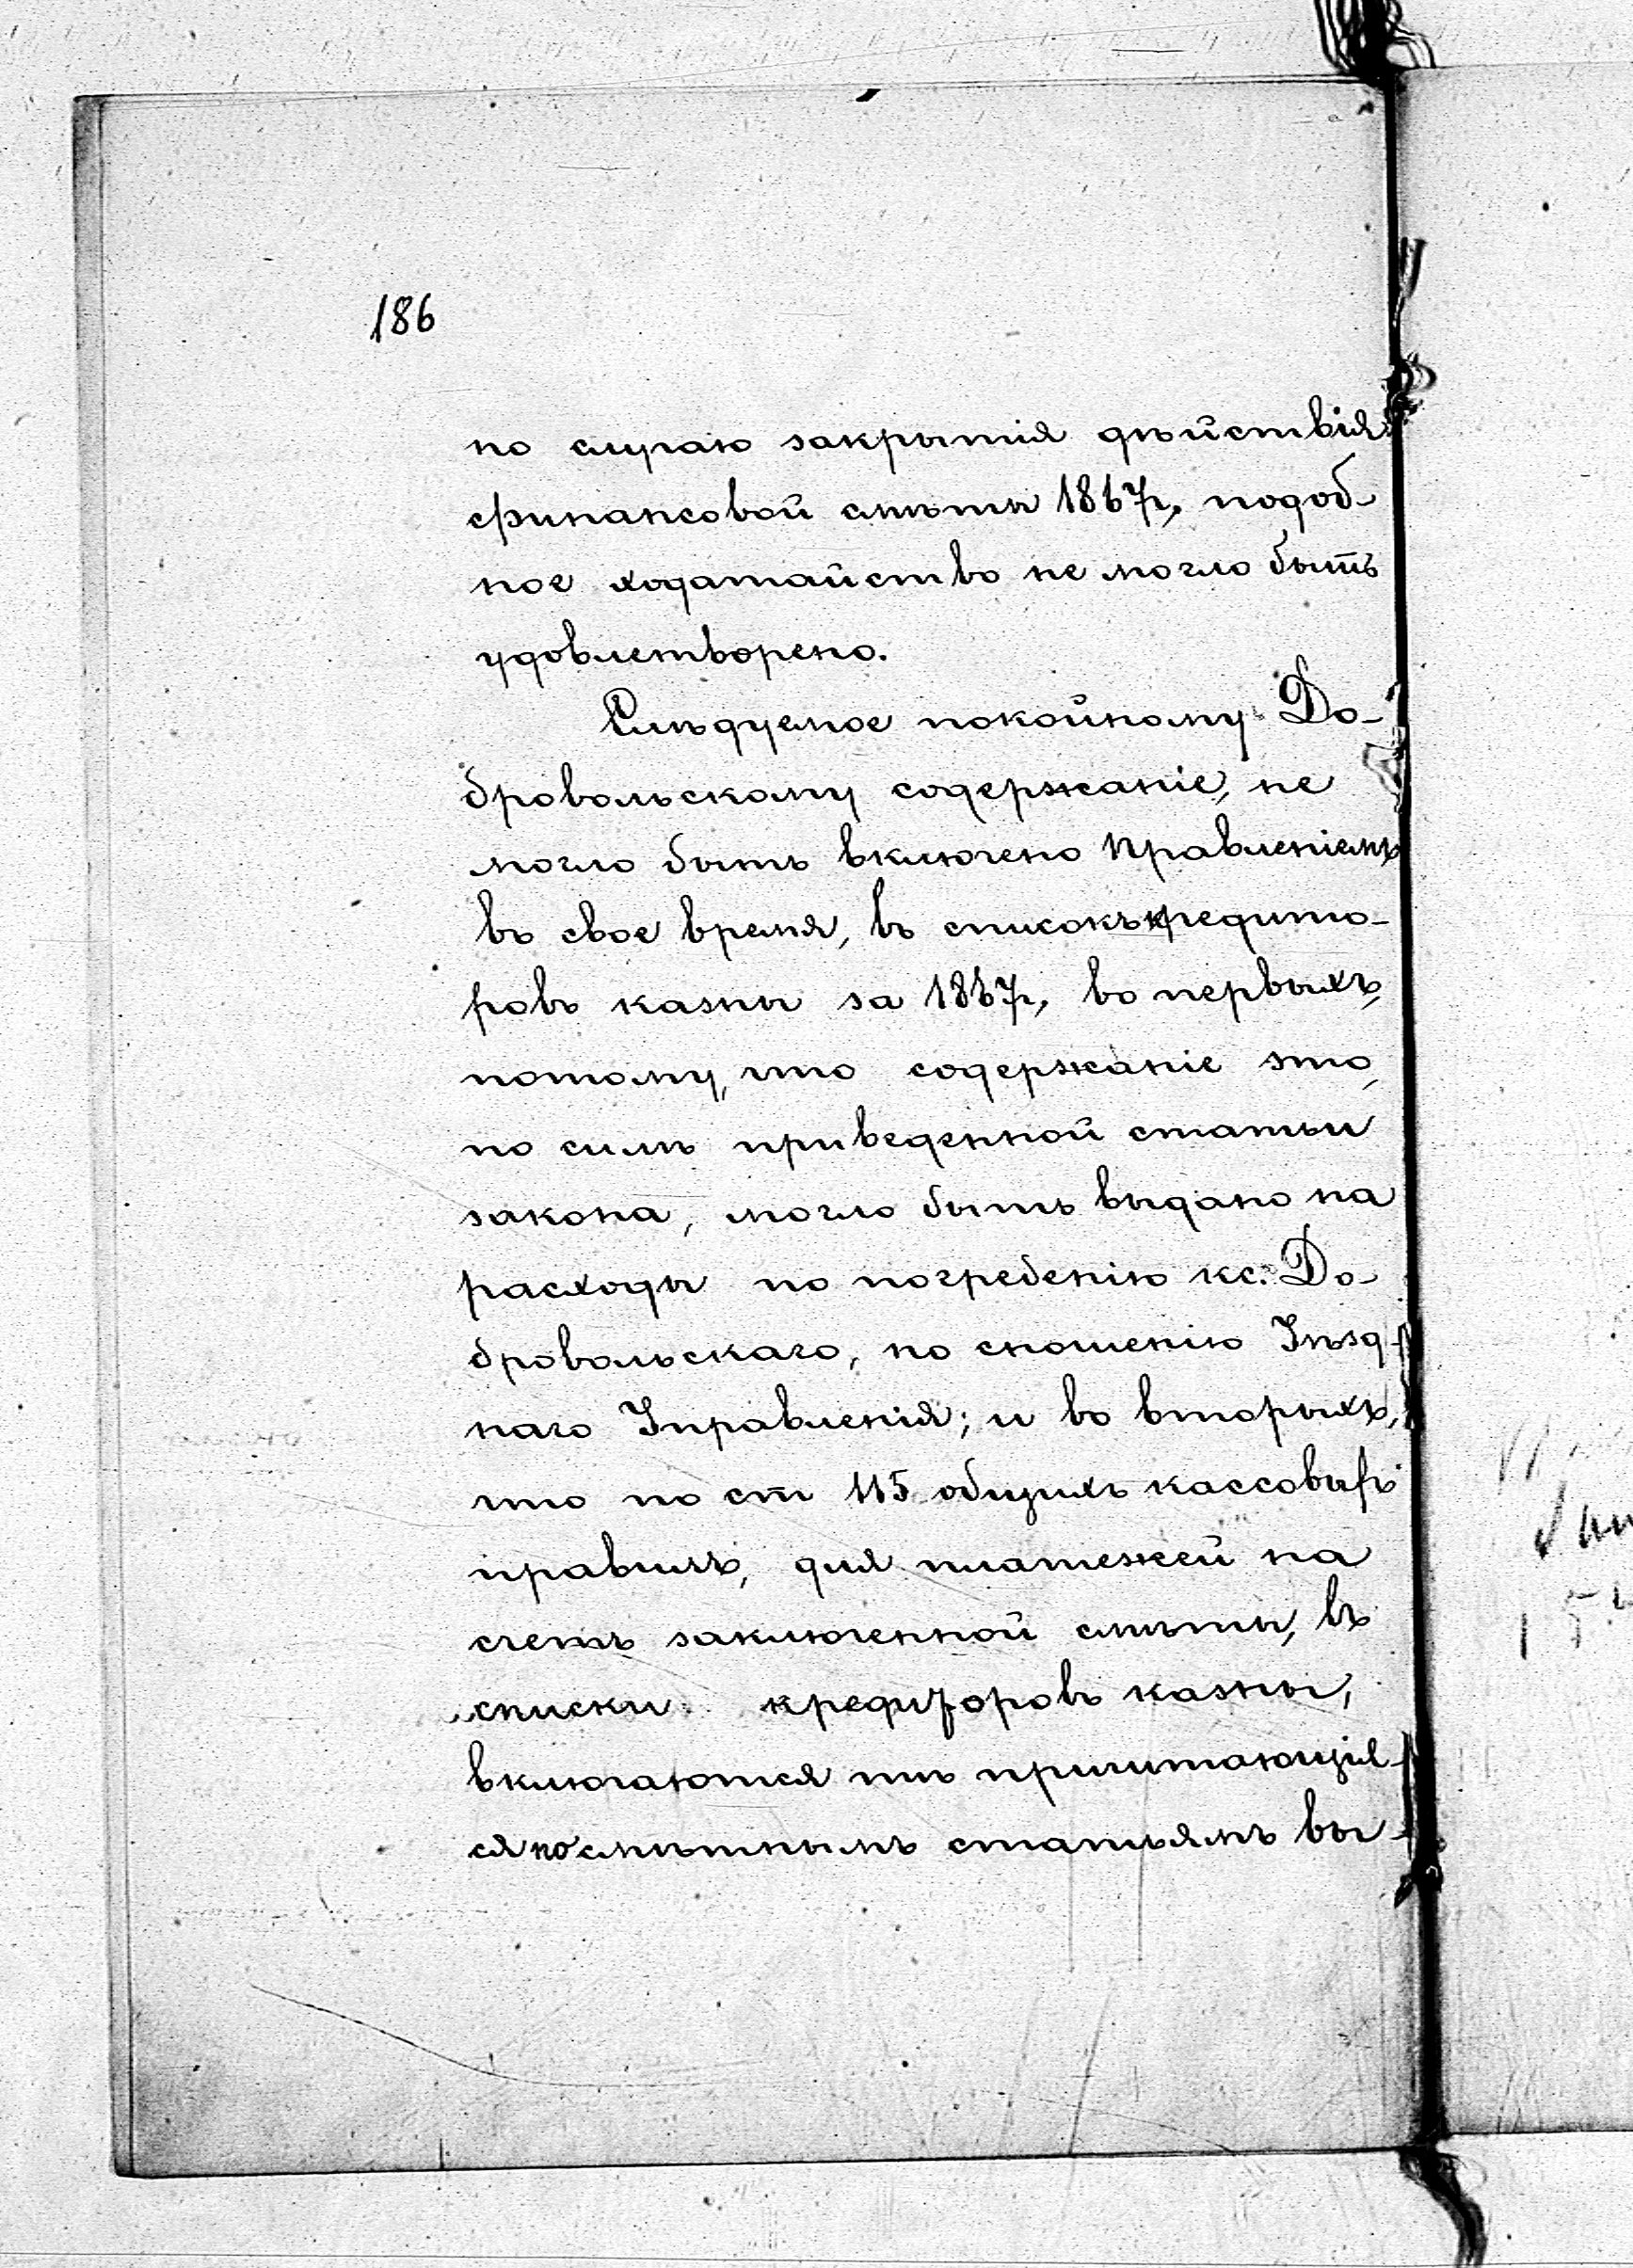 186
по случаю закрытія дѣйствія
финансовой смѣты 1867 г., подоб-
ное ходатайство не могло быть
удовлетворено.
Слѣдуемое покойному До-
бровольскому содержаніе, не
могло быть включено Правленіемъ
въ свое время, въ списокъ кредито-
ровъ казны за 1867 г., во первыхъ,
потому, что содержаніе это,
по силѣ приведенной статьи
закона, могло быть выдано на
расходы по погребенію кс. До-
бровольскаго, по сношенію Уѣзд-
наго Управленія; и во вторыхъ,
что по ст 115 общихъ кассовыхъ
правилъ, для платежей на
счетъ заключенной смѣты, въ
списки кредиторовъ казны,
включаются тѣ причитающія-
ся по смѣтнымъ статьямъ вы-